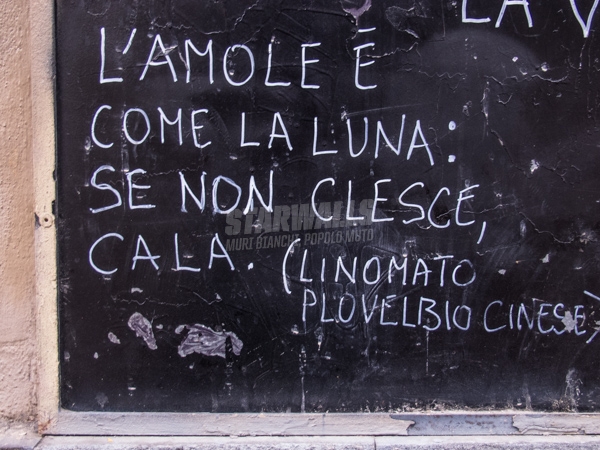 LA V
L'AMOLE È
COME LA LUNA:
SE NON CLESCE,
CALA. (LINOMATO
PLOVELBIO CINESE)
STARWALLS
MURI BIANCHI, POPOLO MUTO